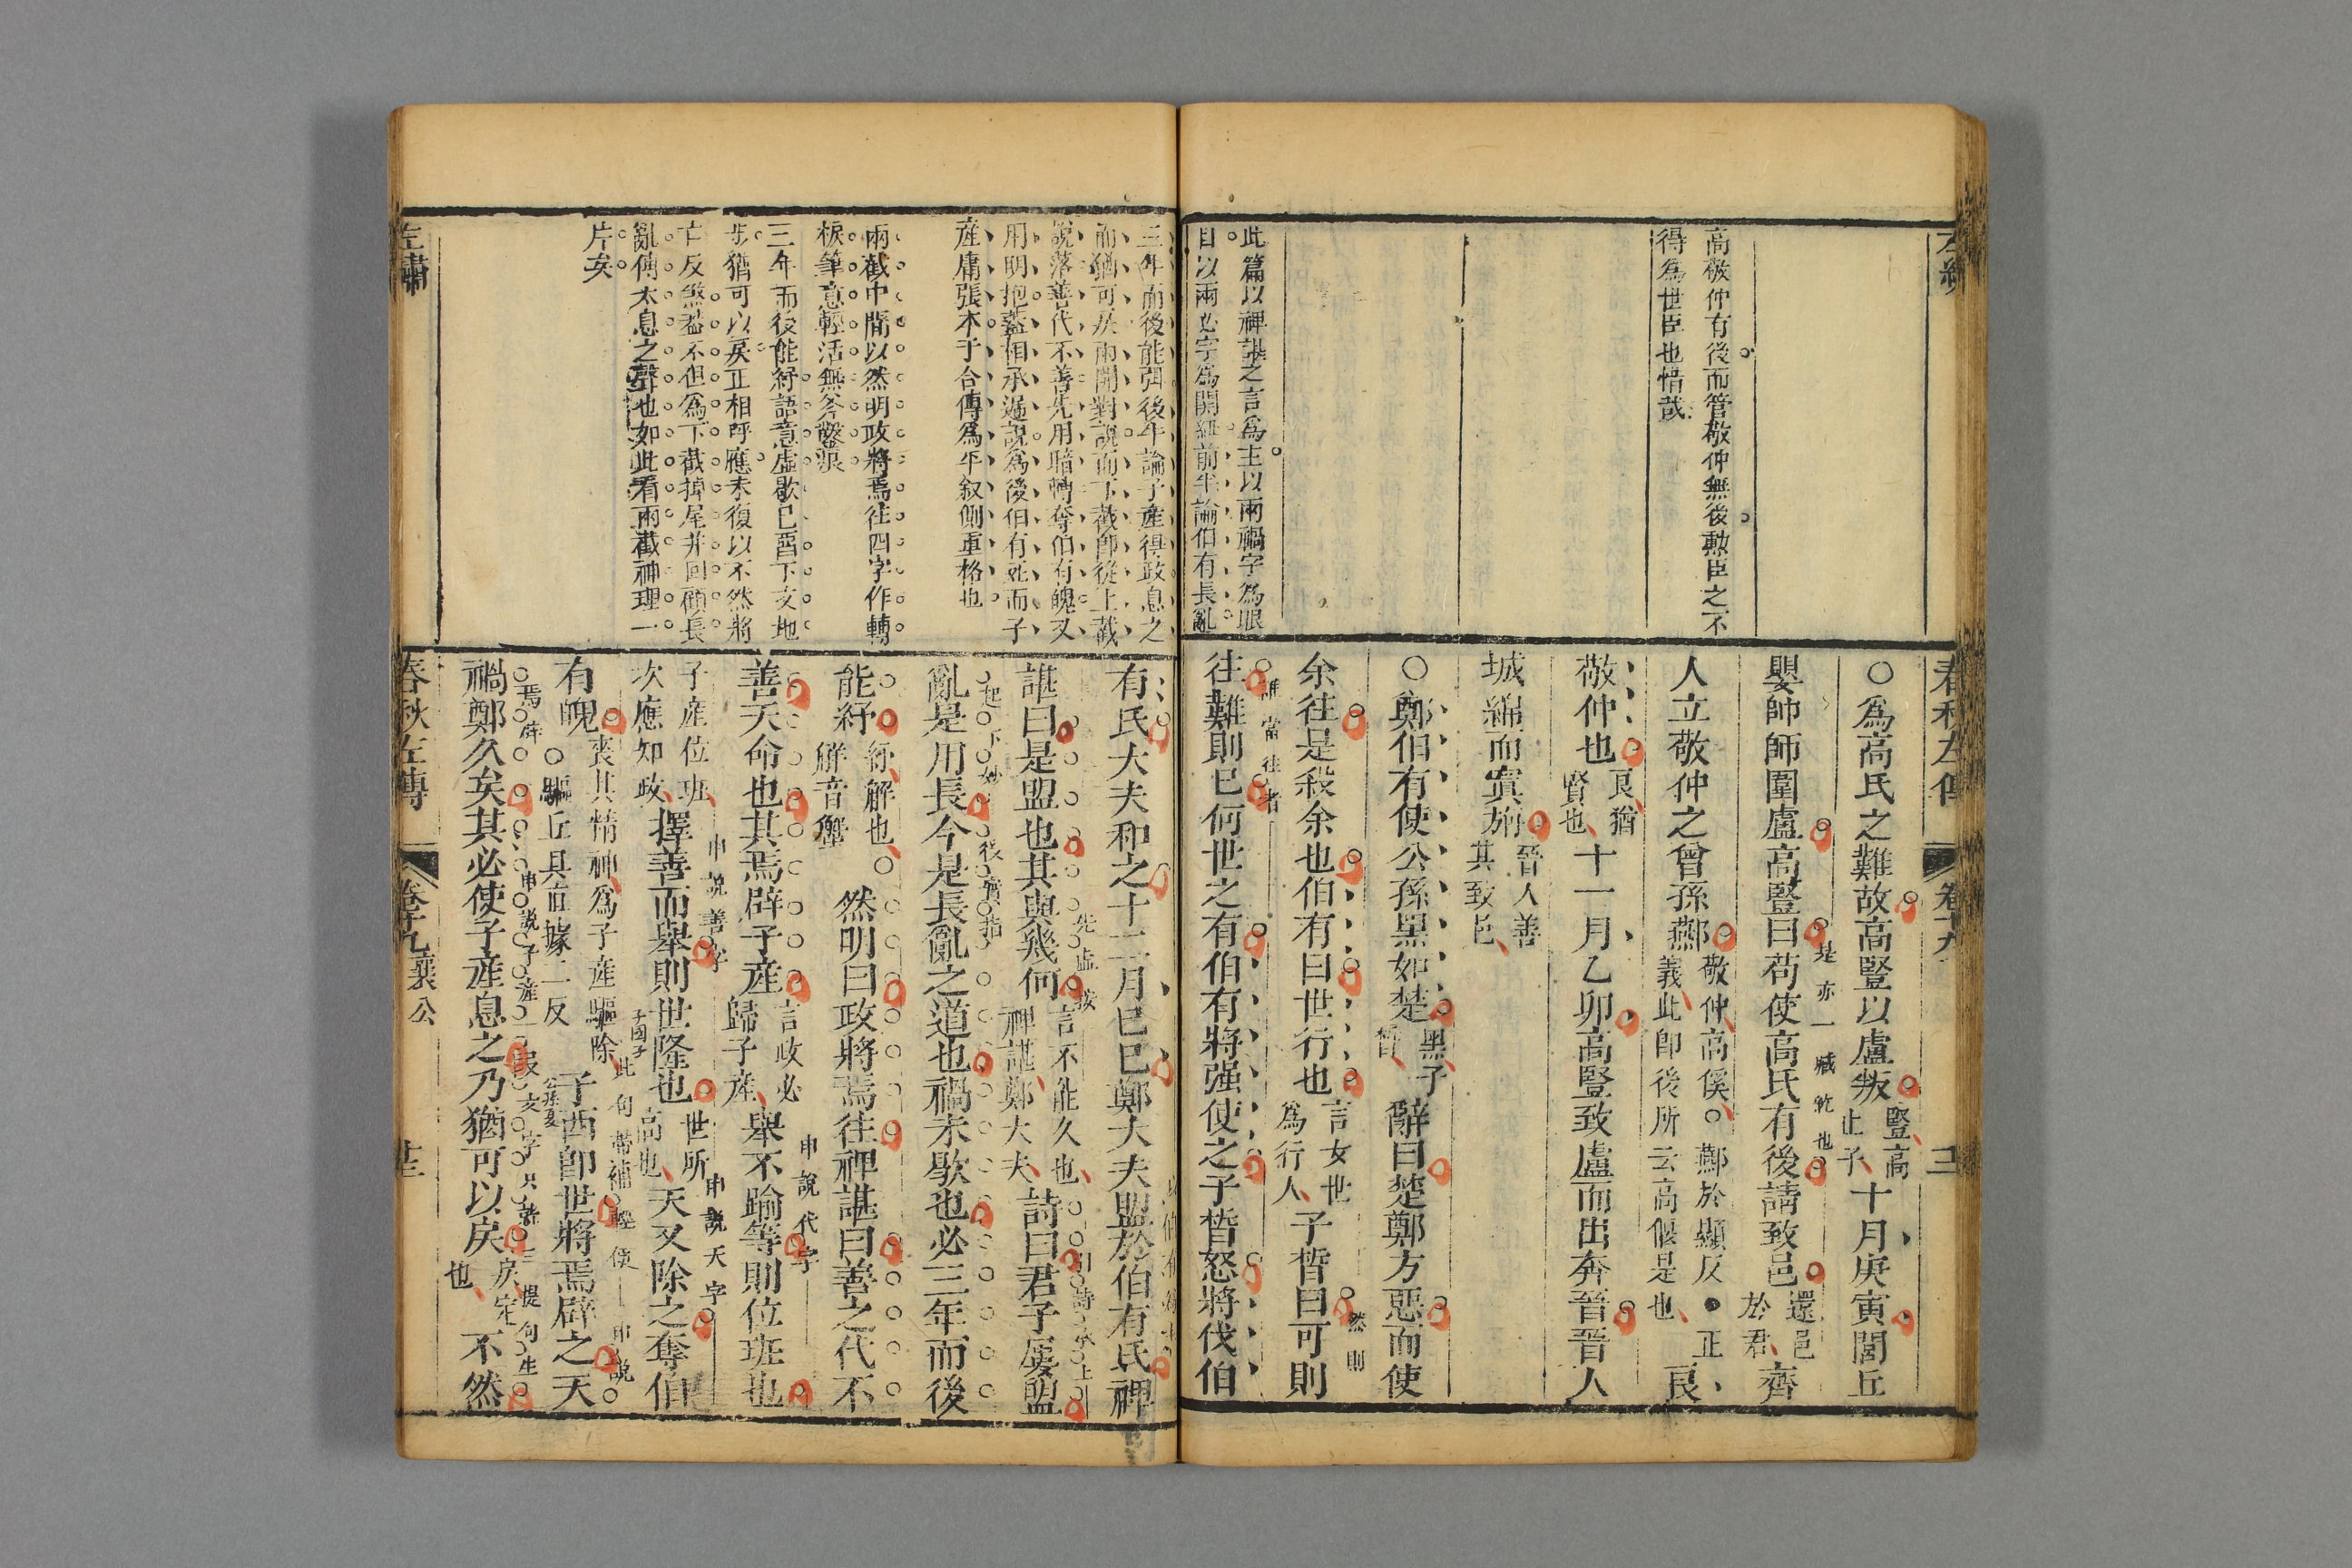 高敬仲有後而管敬仲無後勲臣之不
得爲世臣也惜哉
此篇以裨諶之言爲主以兩禍字爲眼
目以兩必字爲關紐前半論伯有長亂
春秋左傳
卷十九
○爲高氏之難故高豎以盧叛
豎高
止子
十月庚寅閭丘
嬰帥師圍盧高豎曰苟使高氏有後請致邑
還邑
於君
齊
是亦一臧
人立敬仲之曾孫酀
敬仲高傒○酀於顯反●正
義此卽後所云高偃是也
良
敬仲也
良猶
賢也
十一月乙卯高豎致盧而出奔晉晉人
城緜而寘旃
晉人善
其致邑
○鄭伯有使公孫黑如楚
黑子
晳
辭曰楚鄭方惡而使
余往是殺余也伯有曰世行也
言女世
爲行人
子晳曰可則
然則
誰當往者
往難則已何世之有伯有將强使之子晳怒將伐伯
三年而後能弭後半論子產得政息之
而猶可戾兩開對說而下截卽從上截
說落善代不善先用暗轉奪伯有魄又
用明抱蓋相承遞說爲後伯有死而子
產庸張本于合傳爲平叙側重格也
兩截中間以然明政將焉往四字作轉
棙筆意輕活無斧鑿痕
三年而後能紓語意虛歇已醫下文地
步猶可以戾正相呼應末復以不然將
亡反煞蓋不但爲下截掉尾并回顧長
亂傳太息之聲也如此看兩截神理一
片矣
有氏大夫和之十二月已巳鄭大夫盟於伯有氏裨
諶曰是盟也其與幾何
言不能久也
裨諶鄭大夫
詩曰君子屢盟
亂是用長今是長亂之道也禍未歇也必三年而後
能紓
紓解也○
解音蟹
然明曰政將焉往裨諶曰善之代不
善天命也其焉辟子產
言政必
歸子產
舉不踰等則位班也
申說代字
子產位班
次應知政
擇善而舉則世隆也
世所
高也
天又除之奪伯
申說善字
申說天字
有魄
喪其情神爲子產驅除
○驅丘具直據二反
子西卽世將焉辟之天
禍鄭久矣其必使子產息之乃猶可以戾
戾定
也
不然
左繡
春秋左傳
卷十九
襄公